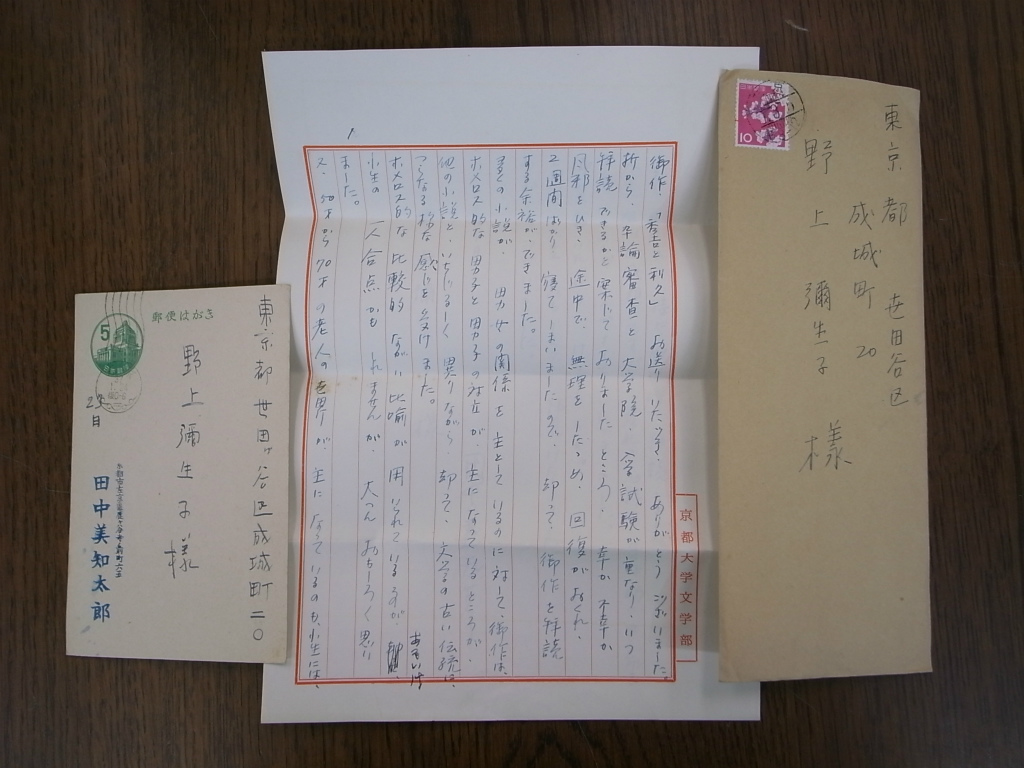 東京都 世田谷区
成城町 20
野上 彌生子 様
日本郵便
10
京都大学文学部
御作、「秀吉と利久」お送りいただき、ありがとうございました。
折から、卒論審査と大学院入学試験が重なり、いつ
拝読できるかと案じてありましたところ、幸か不幸か
風邪をひき、途中で、無理をしたため、回復がおくれ、
2週間ばかり寝てしまいましたので、却って、御作を拝読
する余裕ができました。
多くの小説が、男女の関係を主としているのに対して、御作は、
ホメロス的な男子と男子の対立が、主になっているところが、
他の小説と、いちじるしく異りながら、却って、文学の古い伝統に
つらなる様な感じを受けました。
ホメロス的な比較的ながい比喩が用いられているのが、あるいは
小生の一人合点かも しれませんが、大へんおもしろく思い
ました。
又、50才から70才の老人の世界が、主になっているのも、小生には、
郵便はがき
5
日本郵便
東京都世田ヶ谷区成城町二〇
野上彌生子様
23日
田中美知太郎